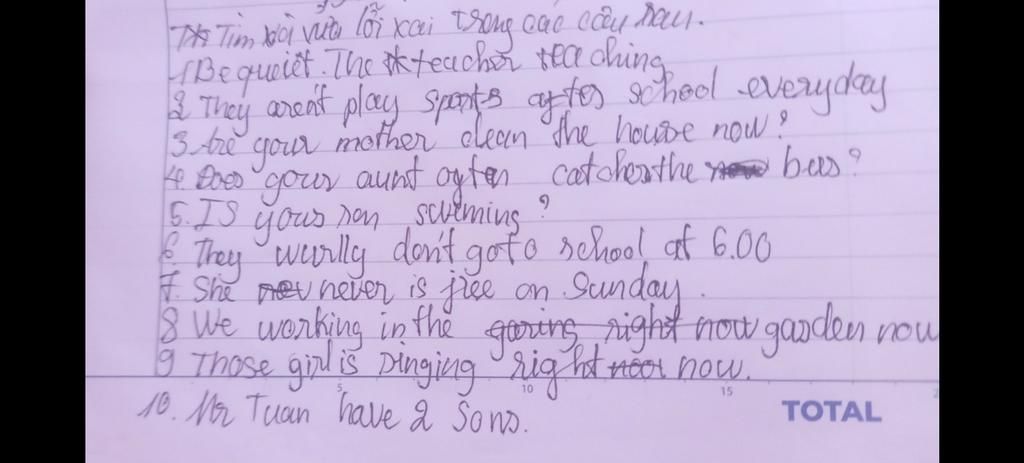 Tìm và sửa lỗi sai trong các câu sau.
1 Be quiet. The teacher teaching
2 They aren't play sports after school everyday
3 Are your mother clean the house now?
4. Does your aunt often catches the bus?
5. Is your son swimming?
6. They usually don't go to school at 6.00
7. She never is free on Sunday.
8 We working in the garden now
9 Those girl is singing right now.
10. Mr Tuan have 2 Sons.
5 10 15
TOTAL